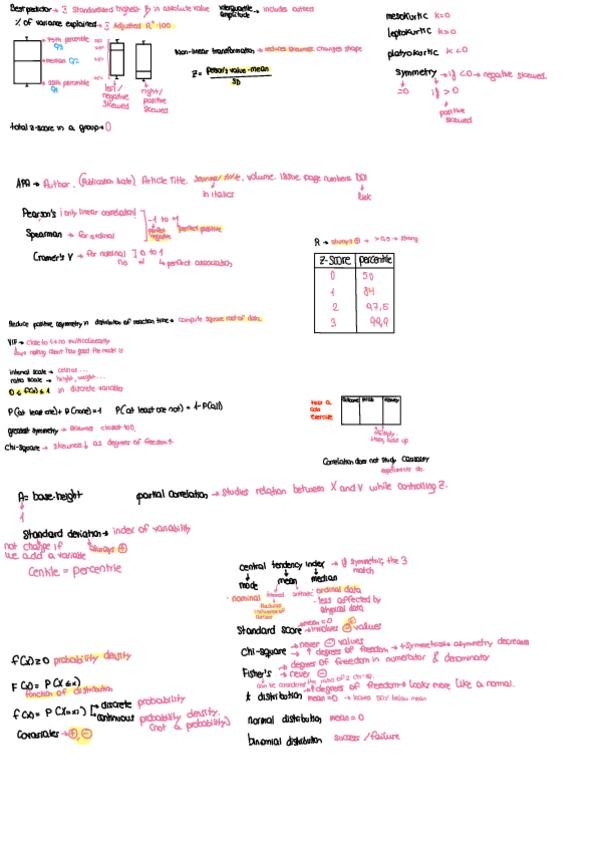 Best predictor → Standardized highest β in absolute value
interquartile amplitude → includes outliers
% of variance explained → Adjusted R² · 100
95th percentile
Q3
median Q2
25th percentile
Q1
left/negative skewed
right/positive skewed
Non-linear transformation → reduces skewness, changes shape
Z = Person's value - mean / SD
mesokurtic k=0
leptokurtic k>0
platykurtic k<0
symmetry → if <0 → negative skewed.
=0 if > 0
positive skewed
total z-score in a group → 0
APA → Author. (Publication Date). Article Title. Journal Title. volume. Issue page numbers. DOI
in italics
link
Pearson's only linear correlation
Spearman → for ordinal
-1 to 1
perfect negative perfect positive
Cramer's V → for nominal 0 to 1
no perfect association
R → always ⊕ → >0,5 → strong
Z-score percentile
0 50
1 84
2 97,5
3 99,9
Reduce positive asymmetry in distribution of reaction time → compute square root of data.
VIF → close to 1 → no multicollinearity
says nothing about how good the model is
interval scale → celsius...
ratio scale → height, weight...
0 ≤ f(x) ≤ 1 in discrete variables
P(at least one) + P(none) = 1 P(at least one not) = 1 - P(all)
greatest symmetry → skewness closest to 0.
Chi-square → skewness ↓ as degrees of freedom ↑
exercise
Correlation does not study causality
experiments do.
A = base·height
1
partial correlation → studies relation between X and Y while controlling Z.
Standard deviation → index of variability
not change if we add a variable
always ⊕
Centile = percentile
central tendency index → if symmetric, the 3 match
mode mean median
· nominal
· ordinal data
- less affected by atypical data
mean = 0
Standard score → involves ⊖ values
Chi-square → never ⊖ values
→ ↑ degrees of freedom → +symmetrical → asymmetry decreases
Fisher's → degrees of freedom in numerator & denominator
→ never ⊖
can be considered the ratio of 2 chi-sq.
t distribution → ↑ degrees of freedom → looks more like a normal.
mean = 0 → leaves 50% below mean
normal distribution mean = 0
binomial distribution success / failure
f(x) ≥ 0 probability density
F(x) = P(X ≤ x)
function of distribution
f(x) = P(X = x)
discrete probability
continuous probability density. (not a probability)
Covariates → ⊕, ⊖